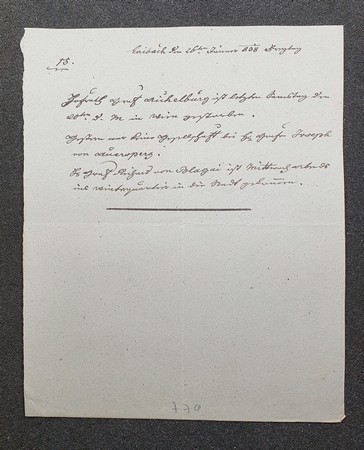 Laibach den 26ten Jänner 838 Freytag
15.
Hofrath Graf Aichelburg ist letzten Samstag den
20ten d. M in Wien gestorben.
Gestern war keine Gesellschaft bei H: Grafen Joseph
von Auersperg.
H: Graf Richard von Blagai ist Mittwoch abends
ins Winterquartir in die Stadt gekommen.
770